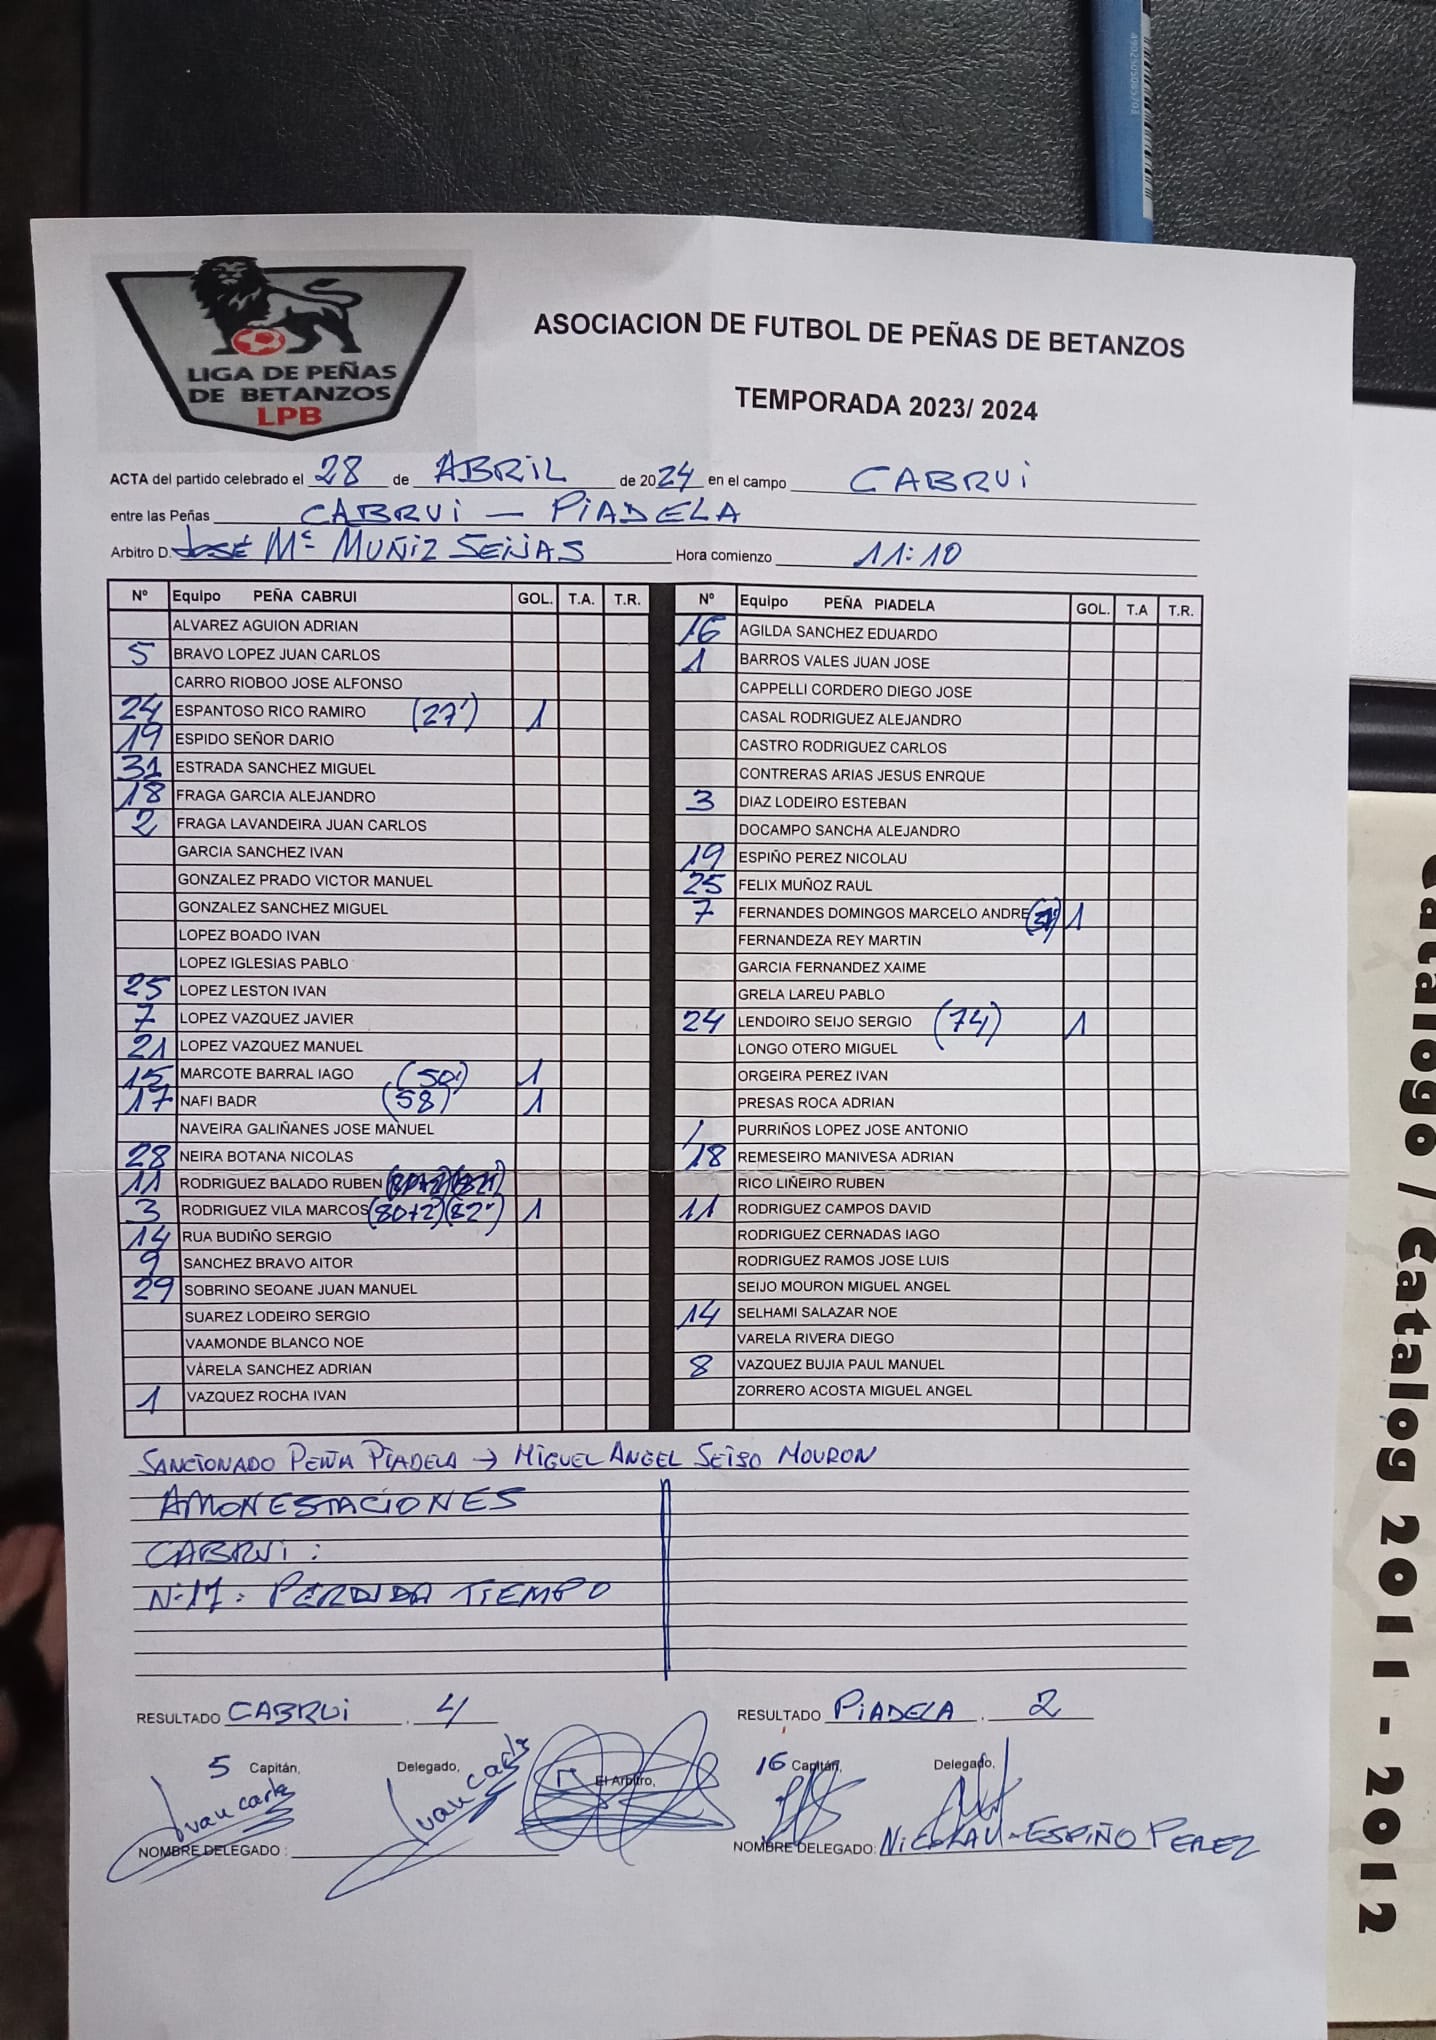 4902505085703
LIGA DE PEÑAS
DE BETANZOS
LPB
ASOCIACION DE FUTBOL DE PEÑAS DE BETANZOS
TEMPORADA 2023/ 2024
ACTA del partido celebrado el 28 de ABRIL de 2024 en el campo CABRUI
entre las Peñas CABRUI - PIADELA
Arbitro D. José Mª MUÑIZ SEIJAS Hora comienzo 11:10
Nº Equipo PEÑA CABRUI GOL. T.A. T.R.
ALVAREZ AGUION ADRIAN
5 BRAVO LOPEZ JUAN CARLOS
CARRO RIOBOO JOSE ALFONSO
24 ESPANTOSO RICO RAMIRO (27') 1
19 ESPIDO SEÑOR DARIO
31 ESTRADA SANCHEZ MIGUEL
18 FRAGA GARCIA ALEJANDRO
2 FRAGA LAVANDEIRA JUAN CARLOS
GARCIA SANCHEZ IVAN
GONZALEZ PRADO VICTOR MANUEL
GONZALEZ SANCHEZ MIGUEL
LOPEZ BOADO IVAN
LOPEZ IGLESIAS PABLO
25 LOPEZ LESTON IVAN
7 LOPEZ VAZQUEZ JAVIER
21 LOPEZ VAZQUEZ MANUEL
15 MARCOTE BARRAL IAGO (50') 1
17 NAFI BADR (58) 1
NAVEIRA GALIÑANES JOSE MANUEL
28 NEIRA BOTANA NICOLAS
11 RODRIGUEZ BALADO RUBEN
3 RODRIGUEZ VILA MARCOS (80+2) (82') 1
14 RUA BUDIÑO SERGIO
9 SANCHEZ BRAVO AITOR
29 SOBRINO SEOANE JUAN MANUEL
SUAREZ LODEIRO SERGIO
VAAMONDE BLANCO NOE
VARELA SANCHEZ ADRIAN
1 VAZQUEZ ROCHA IVAN
Nº Equipo PEÑA PIADELA GOL. T.A T.R.
16 AGILDA SANCHEZ EDUARDO
1 BARROS VALES JUAN JOSE
CAPPELLI CORDERO DIEGO JOSE
CASAL RODRIGUEZ ALEJANDRO
CASTRO RODRIGUEZ CARLOS
CONTRERAS ARIAS JESUS ENRQUE
3 DIAZ LODEIRO ESTEBAN
DOCAMPO SANCHA ALEJANDRO
19 ESPIÑO PEREZ NICOLAU
25 FELIX MUÑOZ RAUL
7 FERNANDES DOMINGOS MARCELO ANDRE 1
FERNANDEZA REY MARTIN
GARCIA FERNANDEZ XAIME
GRELA LAREU PABLO
24 LENDOIRO SEIJO SERGIO (74) 1
LONGO OTERO MIGUEL
ORGEIRA PEREZ IVAN
PRESAS ROCA ADRIAN
PURRIÑOS LOPEZ JOSE ANTONIO
18 REMESEIRO MANIVESA ADRIAN
RICO LIÑEIRO RUBEN
11 RODRIGUEZ CAMPOS DAVID
RODRIGUEZ CERNADAS IAGO
RODRIGUEZ RAMOS JOSE LUIS
SEIJO MOURON MIGUEL ANGEL
14 SELHAMI SALAZAR NOE
VARELA RIVERA DIEGO
8 VAZQUEZ BUJIA PAUL MANUEL
ZORRERO ACOSTA MIGUEL ANGEL
SANCIONADO PEÑA PIADELA → MIGUEL ANGEL SEISO MOURON
AMONESTACIONES
CABRUI:
Nº17: PERDIDA TIEMPO
RESULTADO CABRUI . 4
RESULTADO PIADELA . 2
5 Capitán, Delegado, El Arbitro, 16 Capitán, Delegado,
Juan Carlos Juan Carlos
NOMBRE DELEGADO :
NOMBRE DELEGADO: NICOLAU ESPIÑO PEREZ
Catálogo / Catalog 2011 - 2012